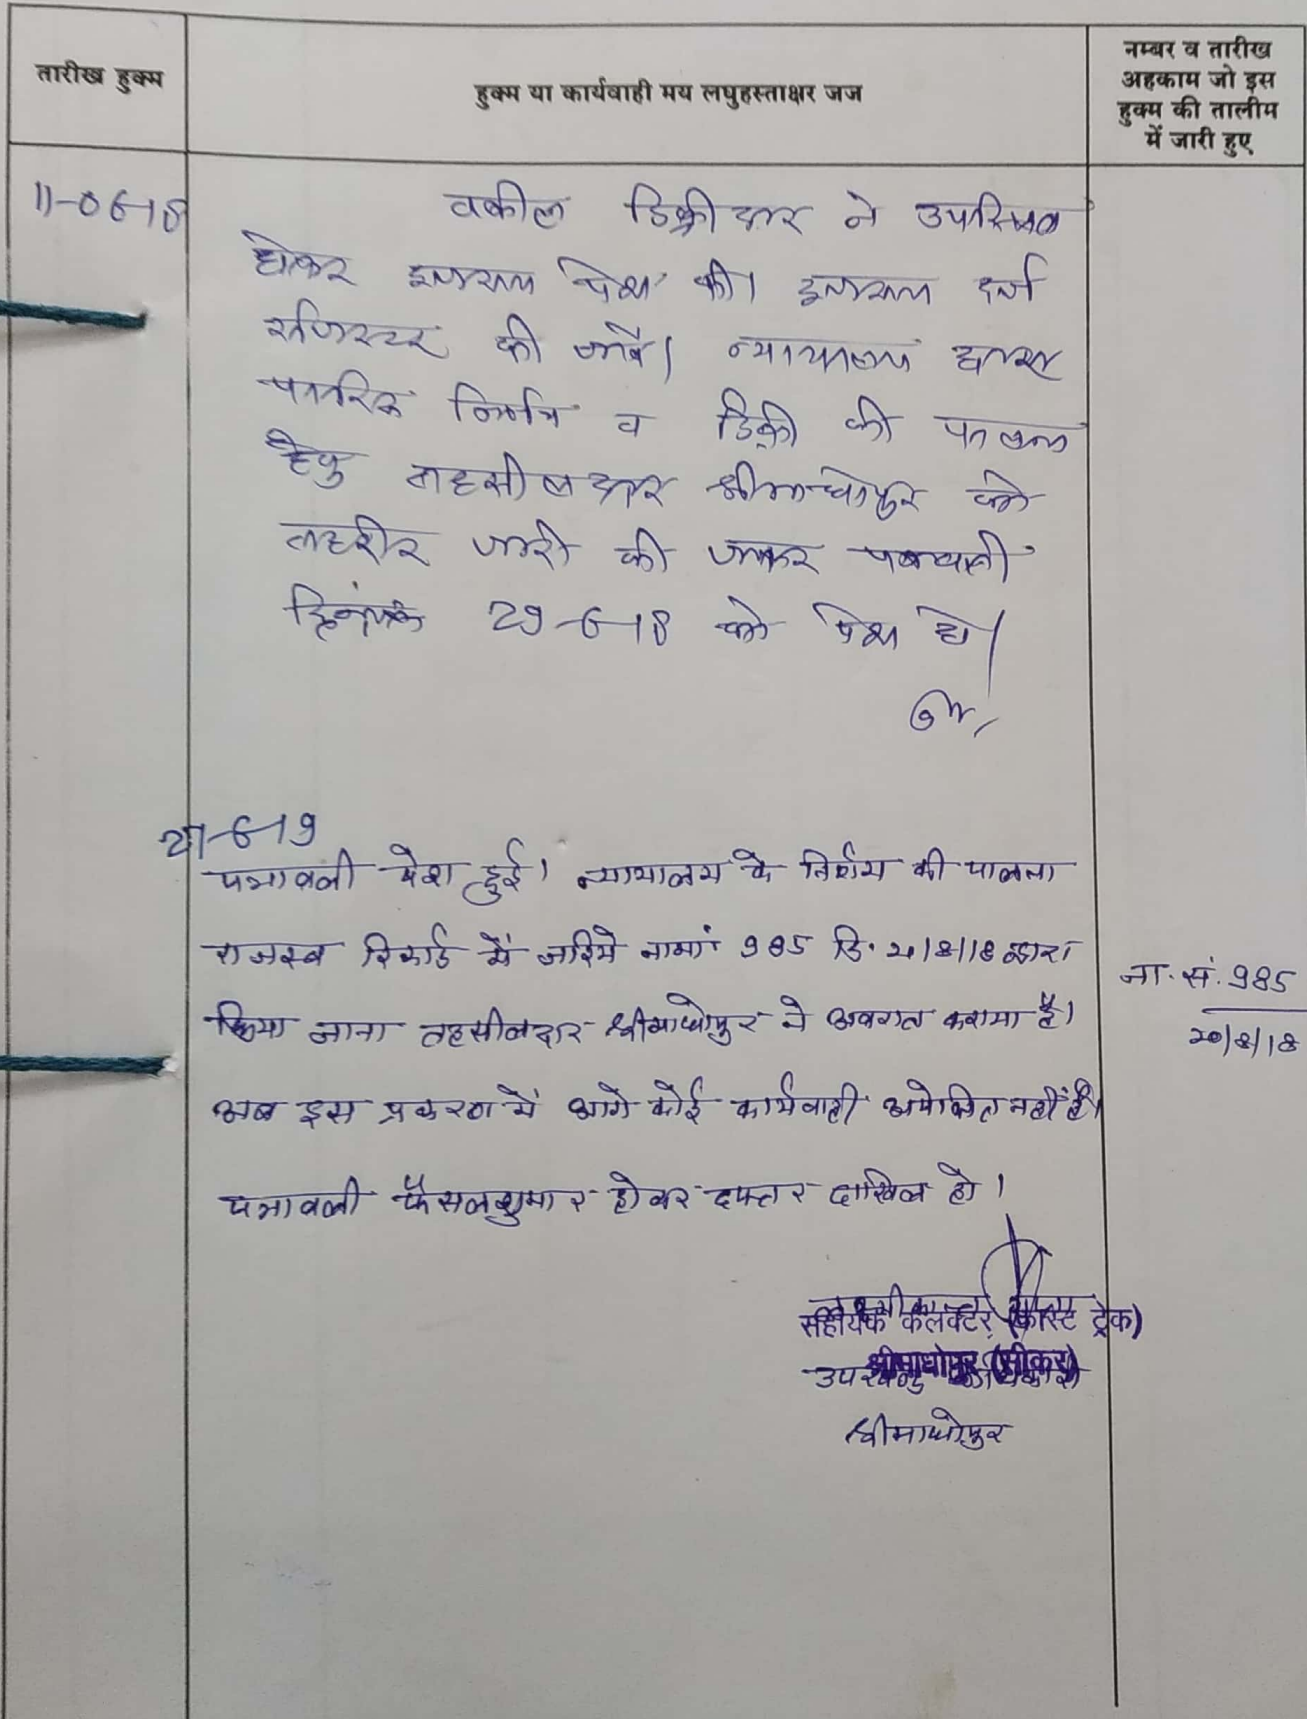 तारीख हुक्म
हुक्म या कार्यवाही मय लघुहस्ताक्षर जज
नम्बर व तारीख
अहकाम जो इस
हुक्म की तालीम
में जारी हुए
11-06-18
वकील डिक्रीदार ने उपस्थित
होकर इजराय पेश की। इजराय दर्ज
रजिस्टर की जावे। न्यायालय द्वारा
पारित निर्णय व डिक्री की पालना
हेतु तहसीलदार श्रीमाधोपुर को
तहरीर जारी की जाकर पत्रावली
दिनांक 29-6-18 को पेश हो।
27-6-19
पत्रावली पेश हुई। न्यायालय के निर्णय की पालना
राजस्व रिकार्ड में जरिये नामां 985 दि. 20/8/18 द्वारा
किया जाना तहसीलदार श्रीमाधोपुर ने अवगत कराया है।
अब इस प्रकरण में आगे कोई कार्यवाही अपेक्षित नहीं है।
पत्रावली फैसलशुमार होकर दफ्तर दाखिल हो।
ना. सं. 985
20/8/18
सहायक कलक्टर (फास्ट ट्रेक)
श्रीमाधोपुर (सीकर)
उपखण्ड अधिकारी
श्रीमाधोपुर